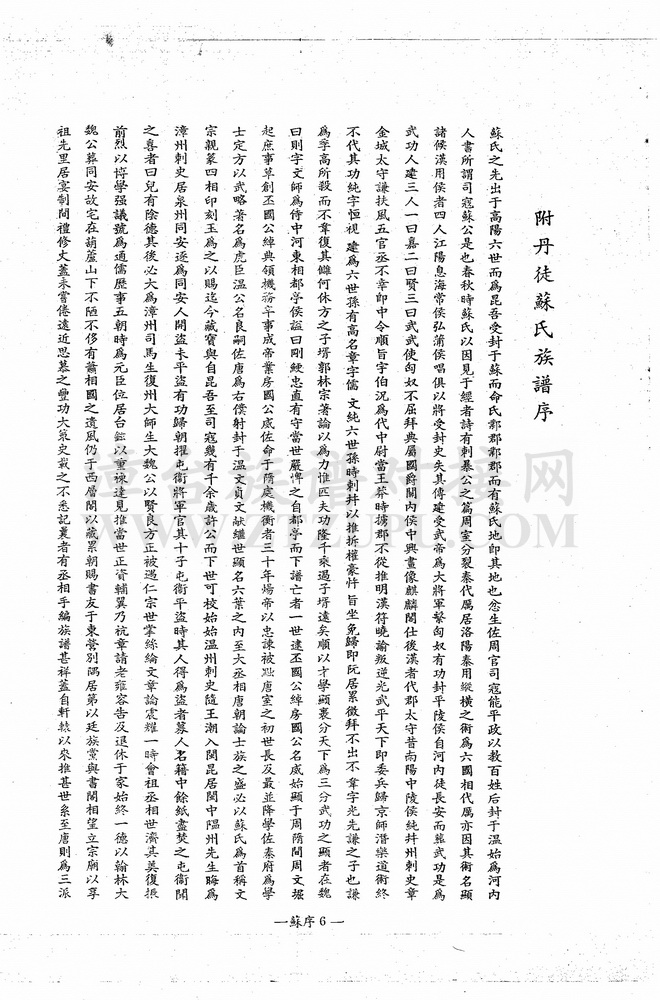 附丹徒蘇氏族譜序
蘇氏之先出于高陽六世而為昆吾受封于蘇而命氏鄴鄴鄴而有蘇氏地即其地也忿生佐周官司寇能平政以教百姓后封于溫始為河內
人書所謂司寇蘇公是也春秋時蘇氏以因見于經者詩有刺暴公之篇周室分裂秦代厲居洛陽秦用縱橫之術為六國相代厲亦因其術名顯
諸候漢用侯者四人江陽息海常侯弘蒲侯唱俱以將受封史失其傳建受武帝為大將軍擊匈奴有功封平陵侯自河內徒長安而葬武功是為
武功人建三人一曰嘉二曰賢三曰武武使匈奴不屈拜典屬國爵關內侯中興畫像麒麟閣仕後漢者代郡太守昔南陽中陵侯純并州刺史章
金城太守謙扶風五官丞不幸郎中令順旨字伯況為代中尉當王莽時擴郡不從推明漢符曉諭叛逆光武平天下即委兵歸京師潛樂道術終
不代其功純字恒視 建為六世孫有高名章字儒 文純六世孫時刺井以推拆權豪忤 旨坐免歸即阮居累徵拜不出不 韋字光先謙之子也謙
為李高所殺而不韋復其讎何休方之子壻郭林宗著論以為力惟匹夫功隆千乘過子壻遠矣順以才學顯裹分天下為三分武功之顯者在魏
曰則字文師為侍中河東相都亭侯諡曰剛鯁忠直有守當世嚴憚之自都亭而下譜亡者一世逮丕國公綽房國公名威始顯于周隋間周文堀
起庶事草創丕國公綽典領機務卒事成帝業房國公威佐命于隋處機衡者三十年煬帝以忠諫被黜唐室之初世長及最並降學佐秦府為學
士定方以武略著名為虎臣溫公名良嗣佐唐為右僕射封于溫文貞文献繼世顯名六葉之內至大丞相唐朝論士族之盛必以蘇氏為首稱文
宗親篆四相印刻玉為之以賜迄今藏寶與自昆吾至司寇幾有千余歲許公而下世可校始始溫州刺史隨王潮入閩昆居閩中隰州先生晦為
漳州刺史居泉州同安逐為同安人開盜卡平盜有功歸朝擢屯衛將軍官其十子屯衛平盜時其人得為盜者募人名籍中餘紙盡焚之屯衛閩
之喜者曰兒有陰德其後必大為漳州司馬生復州大師生大魏公以賢良方正被遇仁宗世掌絲綸文章論震耀一時會祖丞相世濟其美復振
前烈以博學强議號為通儒歷事五朝時為元臣位居台鉉以重裱達見推當世正資輔翼乃杭章請老雍容告及退休于家始終一德以翰林大
魏公葬同安故宅在葫蘆山下不陋不侈有蕭相國之遺風仍于西層閣以藏累朝賜書友于東營別隅居第以廷族黨與書閣相望立宗廟以享
祖先里居宴制間禮修丈蓋未嘗倦遠近思慕之豊功大策史載之不悉記曩者有丞相手編族譜甚祥蓋自軒轅以來推甚世系至唐則為三派
—蘇序6—